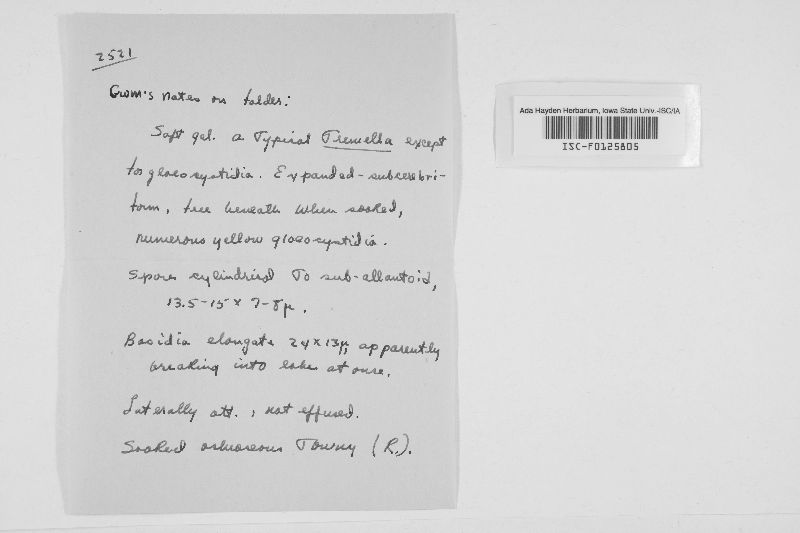 2521
GWM's notes on folder:
Soft gel. a Typical Tremella except
for gloeocystidia. Expanded-subcerebri-
form, free beneath when soaked,
numerous yellow gloeocystidia.
Spores cylindrical To sub-allantoid,
13.5-15 x 7-8μ.
Basidia elongate 24 x 13μ, apparently
breaking into lobes at once.
Laterally att., not effused.
Soaked ochraceous Tawny (R.).
Ada Hayden Herbarium, Iowa State Univ.-ISC/IA
ISC-F0125805